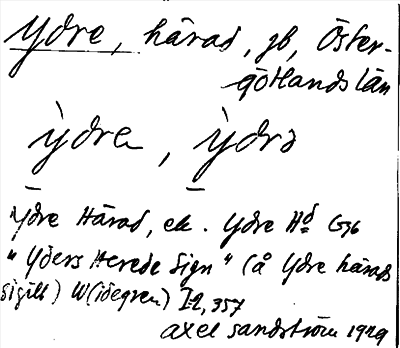 Ydre, härad, gb, Öster-
götlands län
ỳdre, ỳdrə
Ydre Härad, ek. Ydre Hd G36
"Yders Herede Sign" (å Ydre härads
sigill) W(idegren) I:2, 357
Axel Sandström 1929